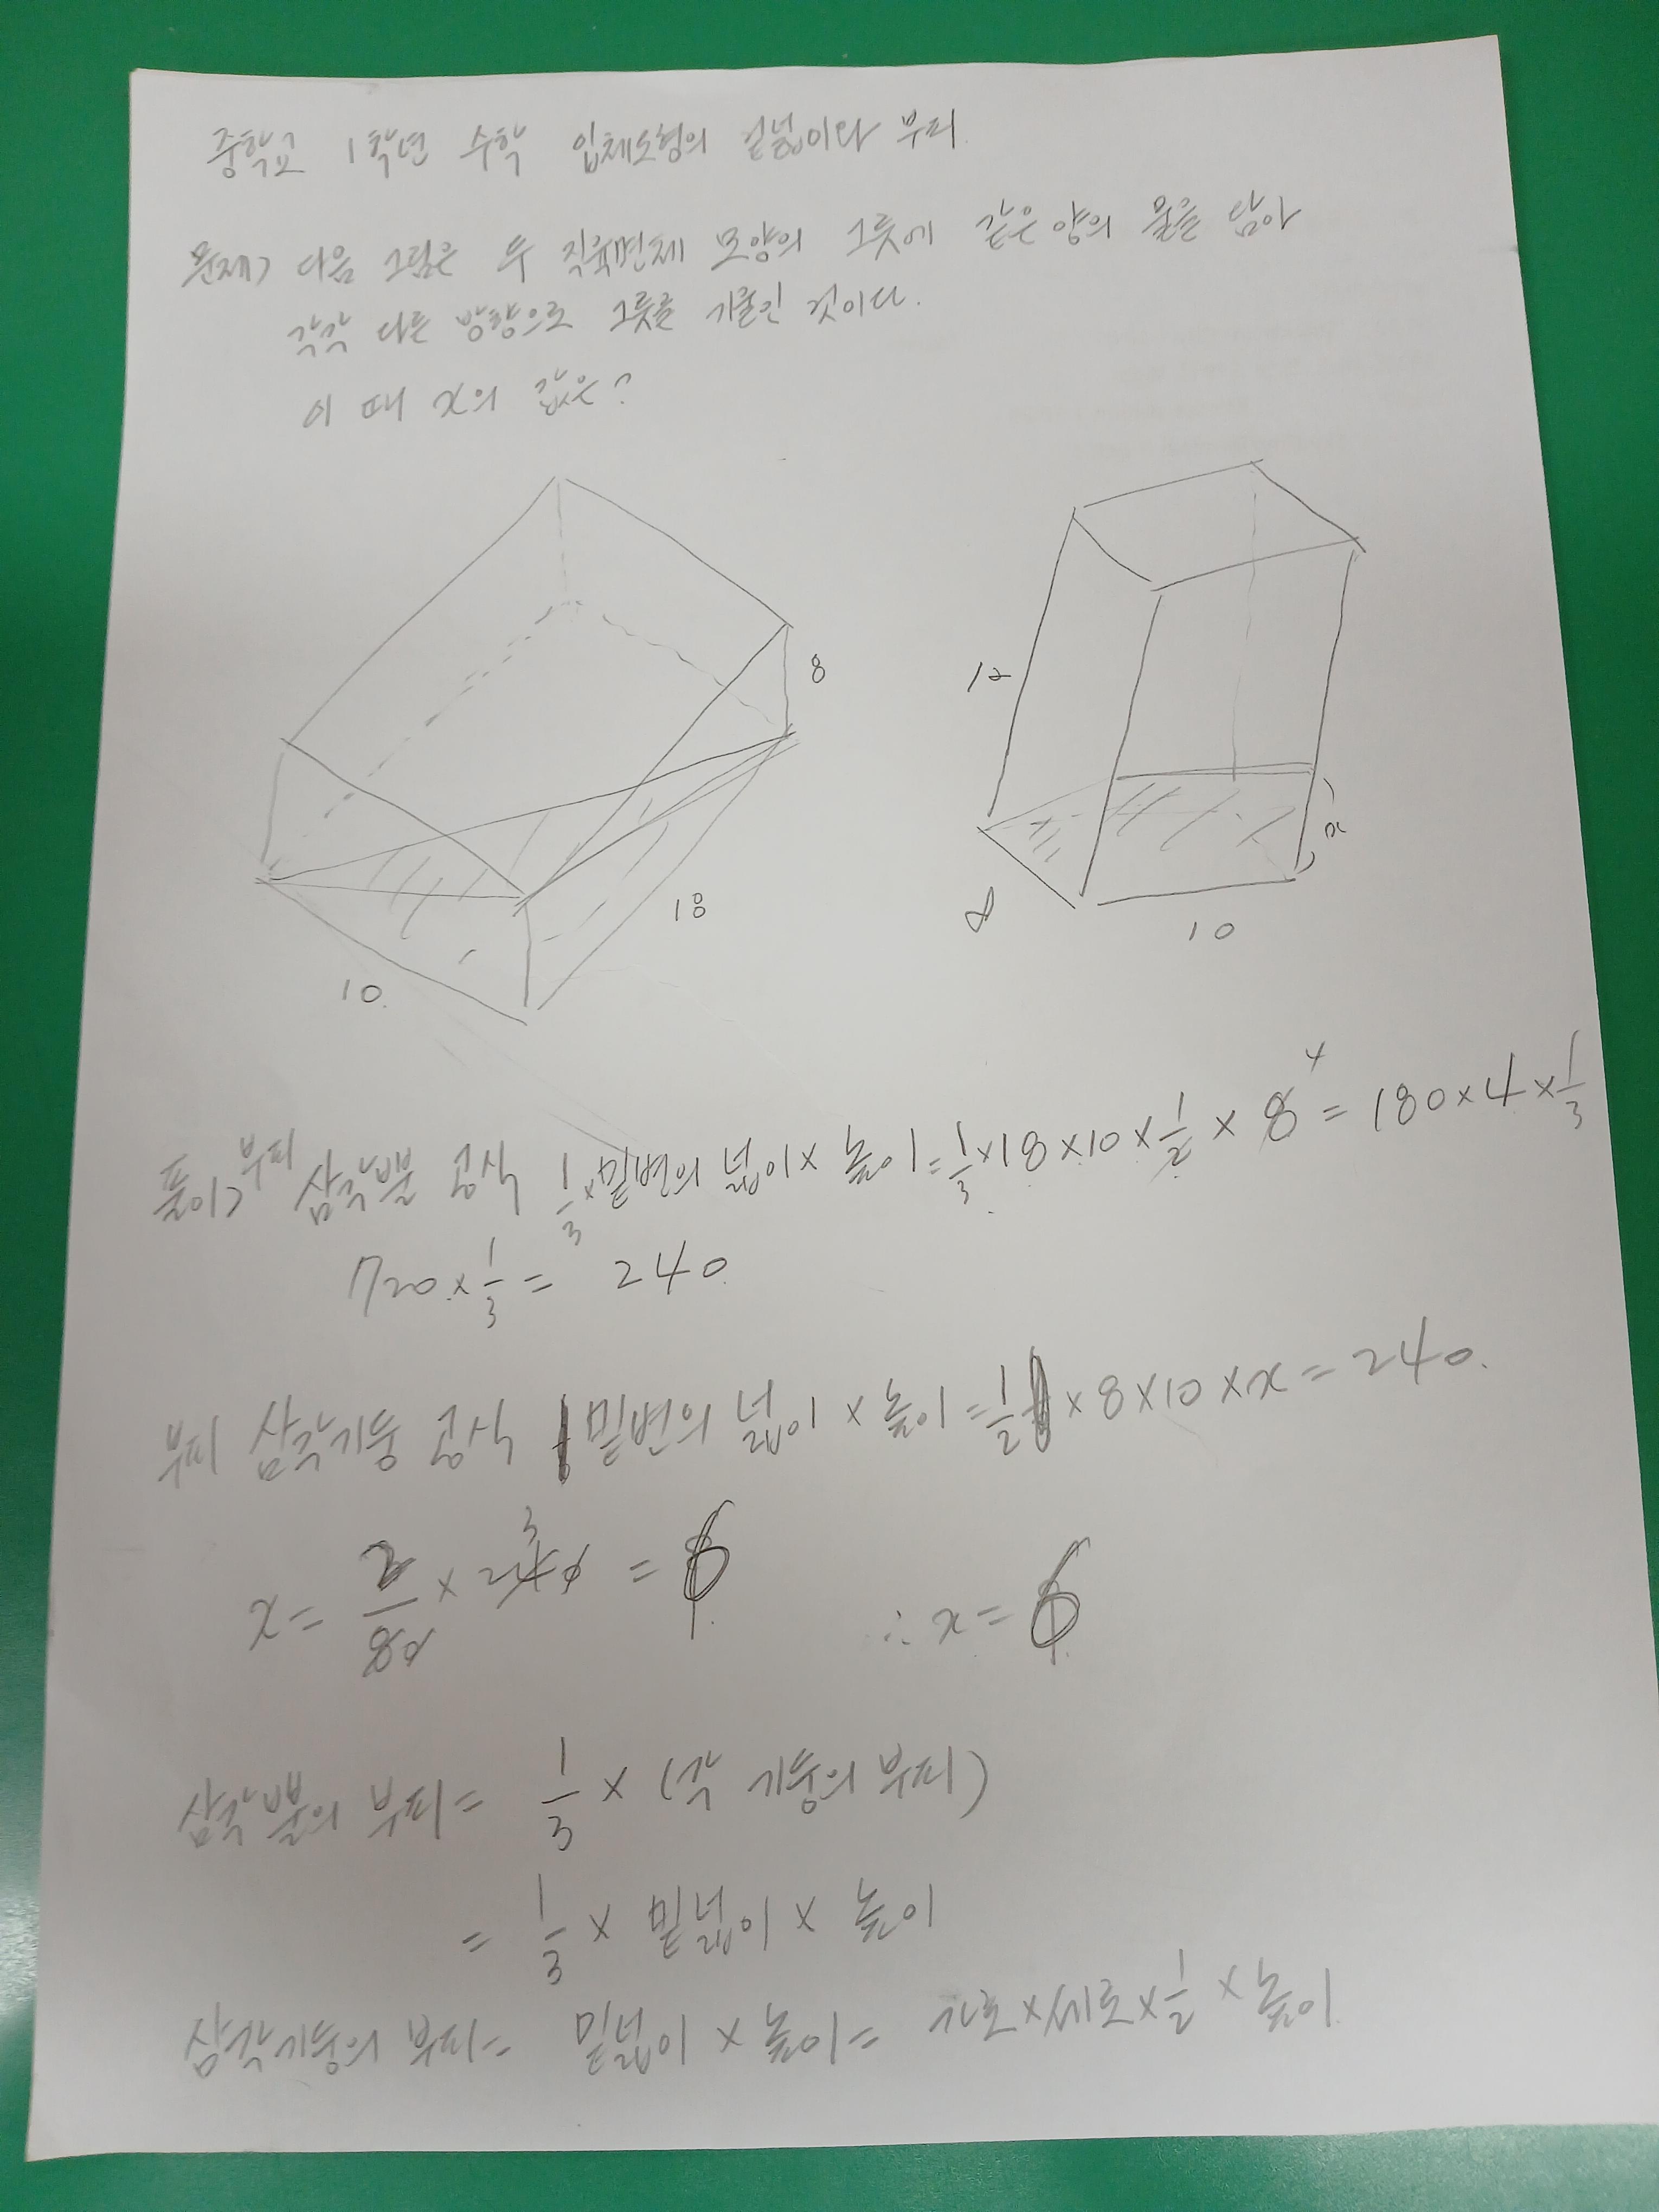 중학교 1학년 수학 입체도형의 겉넓이와 부피.
문제> 다음 그림은 두 직육면체 모양의 그릇에 같은 양의 물을 담아
각각 다른 방향으로 그릇을 기울인 것이다.
이 때 x의 값은?
8
18
10
12
x
8
10
풀이> 부피 삼각뿔 공식 1/3 × 밑변의 넓이 × 높이 = 1/3 × 18 × 10 × 1/2 × 8 4 = 180 × 4 × 1/3
720 × 1/3 = 240
부피 삼각기둥 공식 밑변의 넓이 × 높이 = 1/2 × 8 × 10 × x = 240.
x = 2/80 × 240 3 = 6
∴ x = 6
삼각뿔의 부피 = 1/3 × (각 기둥의 부피)
= 1/3 × 밑넓이 × 높이
삼각기둥의 부피 = 밑넓이 × 높이 = 가로 × 세로 × 1/2 × 높이